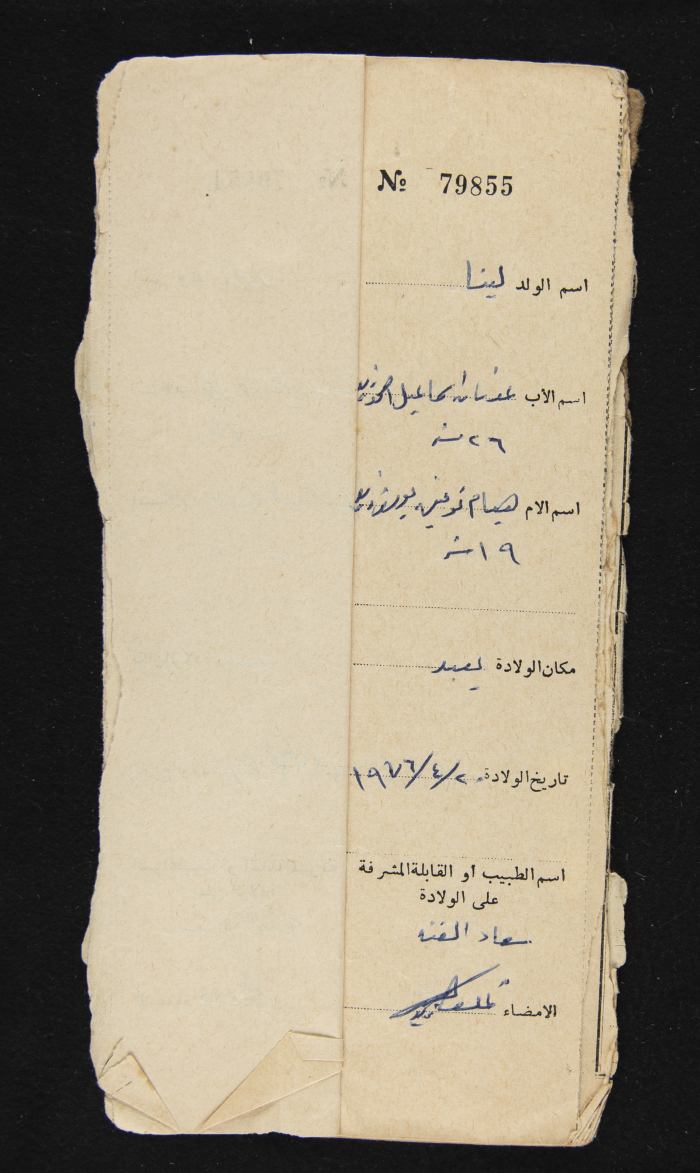 № 79855
اسم الولد لينا
اسم الأب عدنان اسماعيل
٢٦ سنة
اسم الام هيام توفيق
١٩ سنة
مكان الولادة يعبد
تاريخ الولادة ٢٠/٤/١٩٧٦
اسم الطبيب أو القابلة المشرفة
على الولادة
سعاد
الامضاء